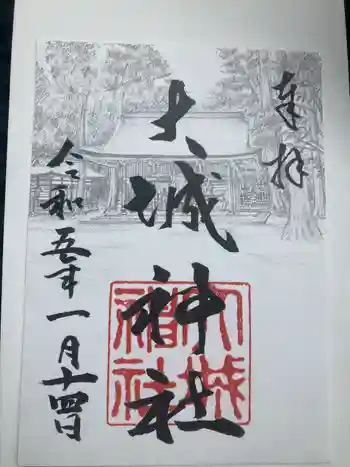 奉拝
大城神社
令和五年一月十四日
大城
神社